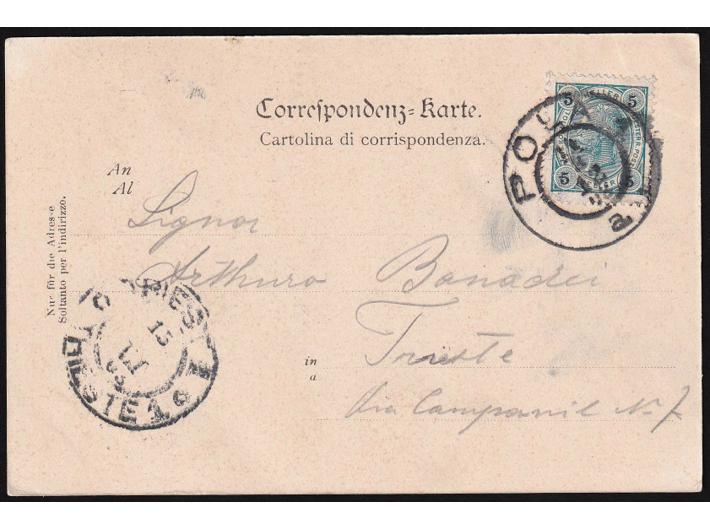 Correspondenz-Karte.
Cartolina di corrispondenza.
5 HELLER 5
5 5
POLA
a
An
Al
Signor
Arthuro Bonadei
in
a
Trieste
Via Campanil N. 7
Nur für die Adresse
Soltanto per l'indirizzo.
TRIEST
TRIESTE
13